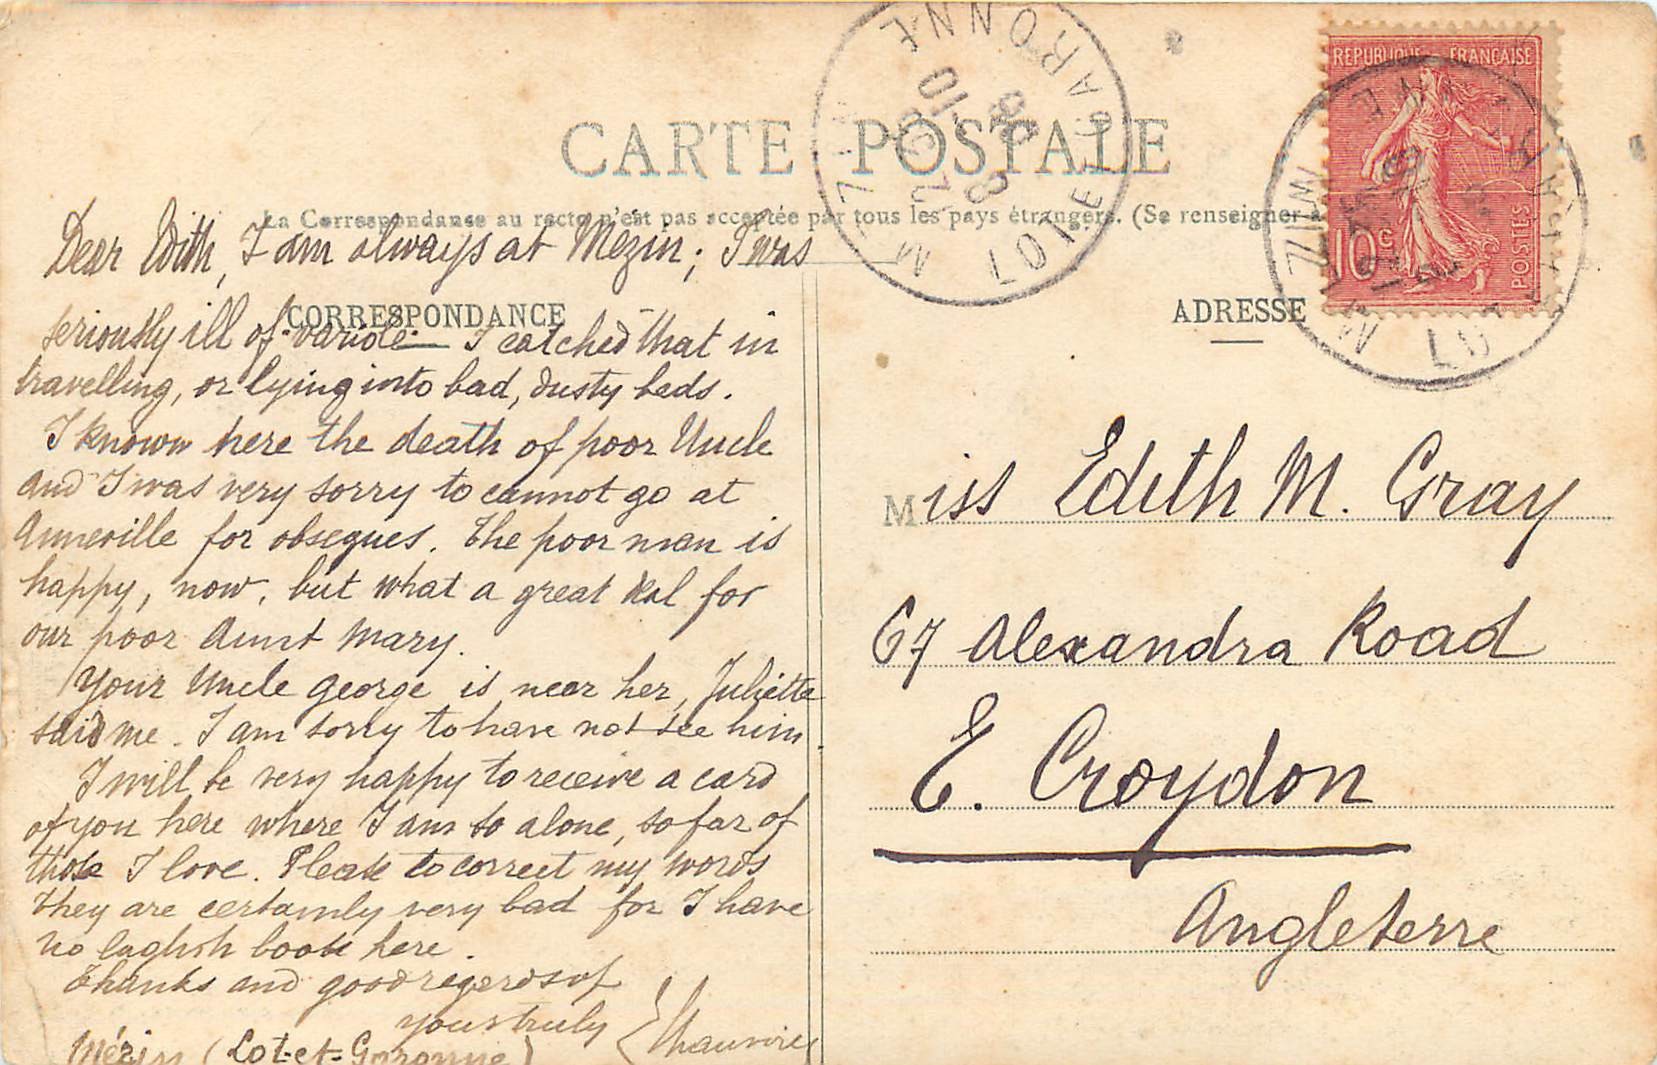 CARTE POSTALE
La Correspondance au recto n'est pas acceptée par tous les pays étrangers. (Se renseigner à
CORRESPONDANCE
Dear Edith, I am always at Mézin; I was
seriously ill of variole. I catched that in
travelling, or lying into bad, dusty beds.
I known here the death of poor Uncle
and I was very sorry to cannot go at
Anneville for obseques. The poor man is
happy, now, but what a great deal for
our poor Aunt Mary.
Your Uncle George is near her, Juliette
said me. I am sorry to have not see him.
I will be very happy to receive a card
of you here where I am so alone, so far of
those I love. Please to correct my words
They are certainly very bad for I have
no english book here.
Thanks and good regards of
yours truly
Mézin (Lot-et-Garonne)
ADRESSE
Miss Edith M. Gray
67 Alexandra Road
E. Croydon
Angleterre
REPUBLIQUE FRANÇAISE
10c
POSTES
MEZIN
LOT ET GARONNE